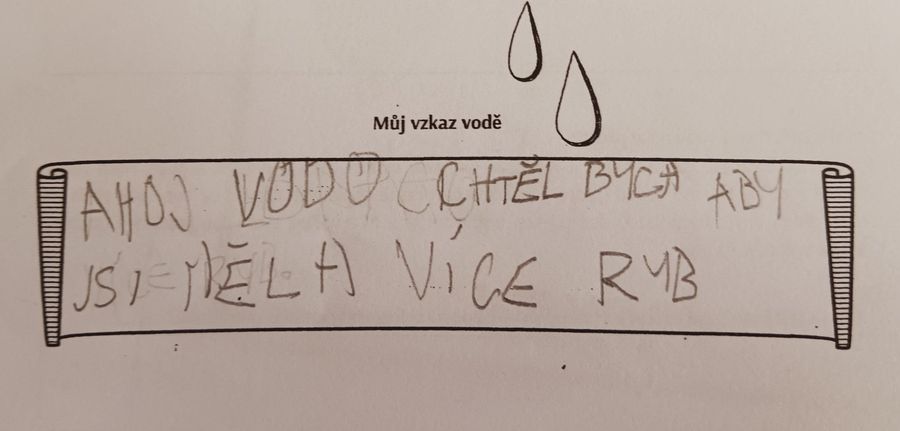 Můj vzkaz vodě
AHOJ VODO CHTĚL BYCH ABY
JSI MĚLA VÍCE RYB